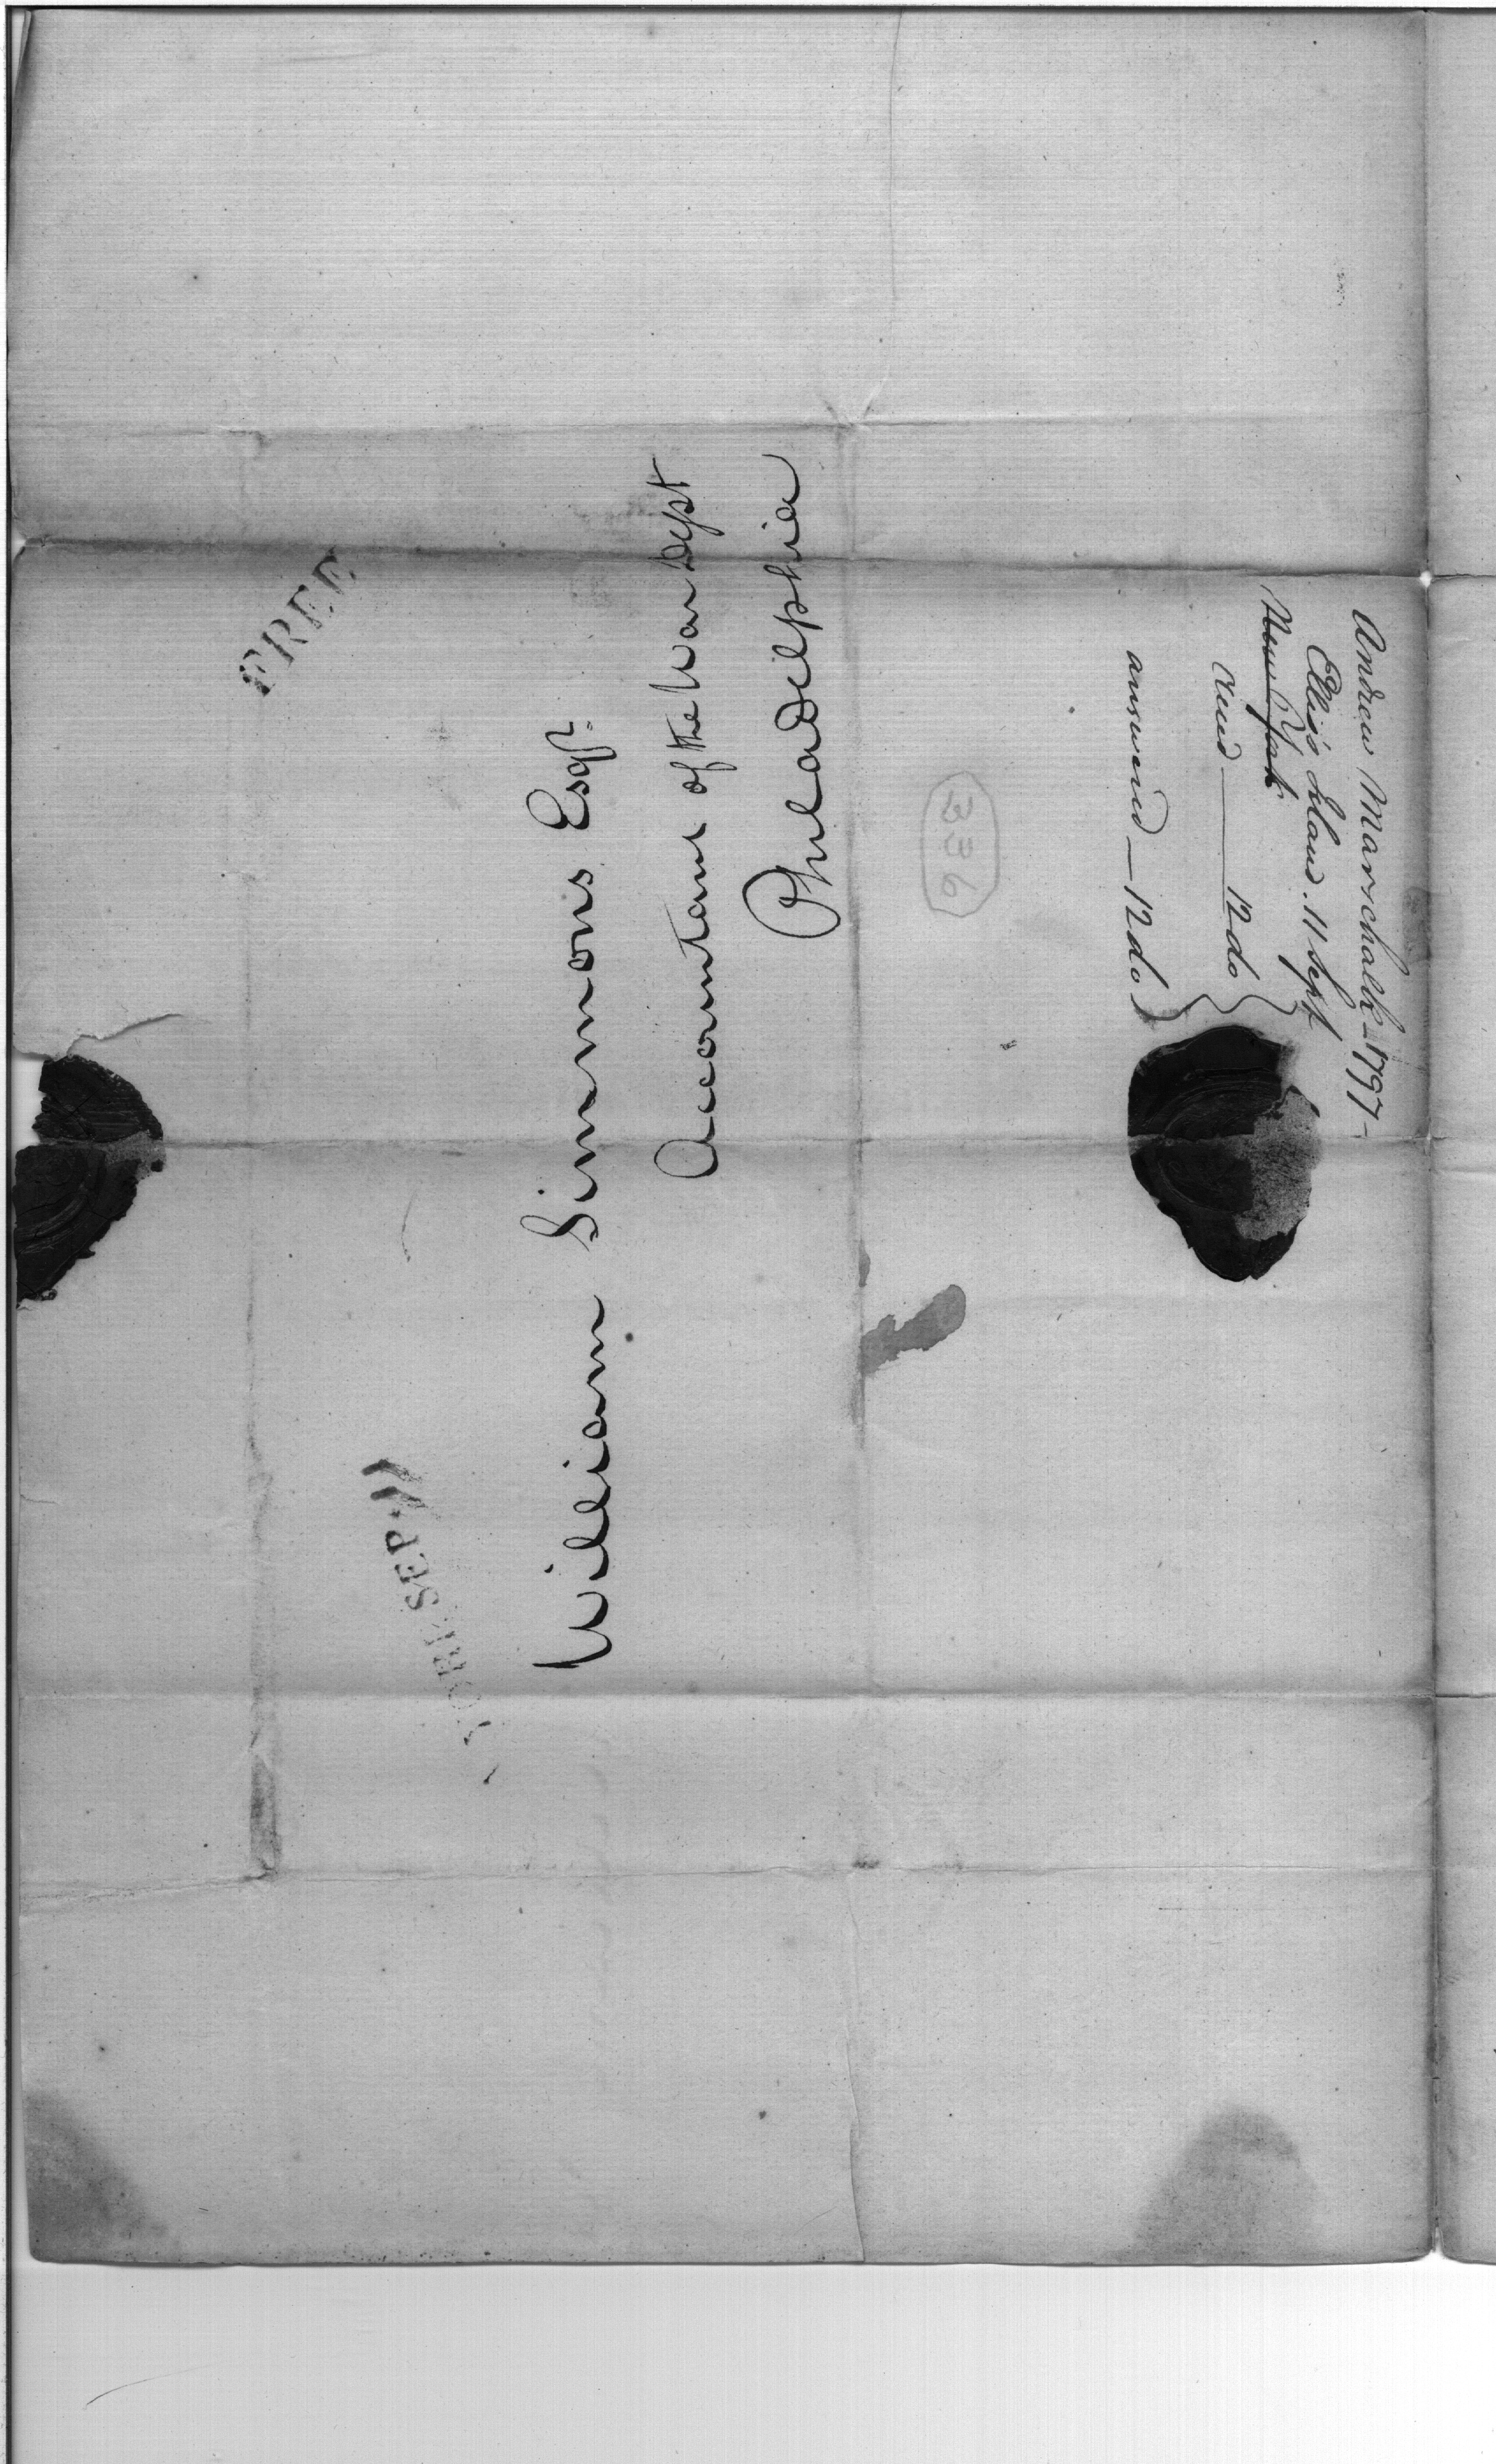 FREE
YORK SEP 11
William Simmons Esqr.
Accountant of the War Dept
Philadelphia
336
Andrew Marschalk - 1797 -
Ellis's Island. 11 Sept
New York
recd — 12 do
answered — 12 do